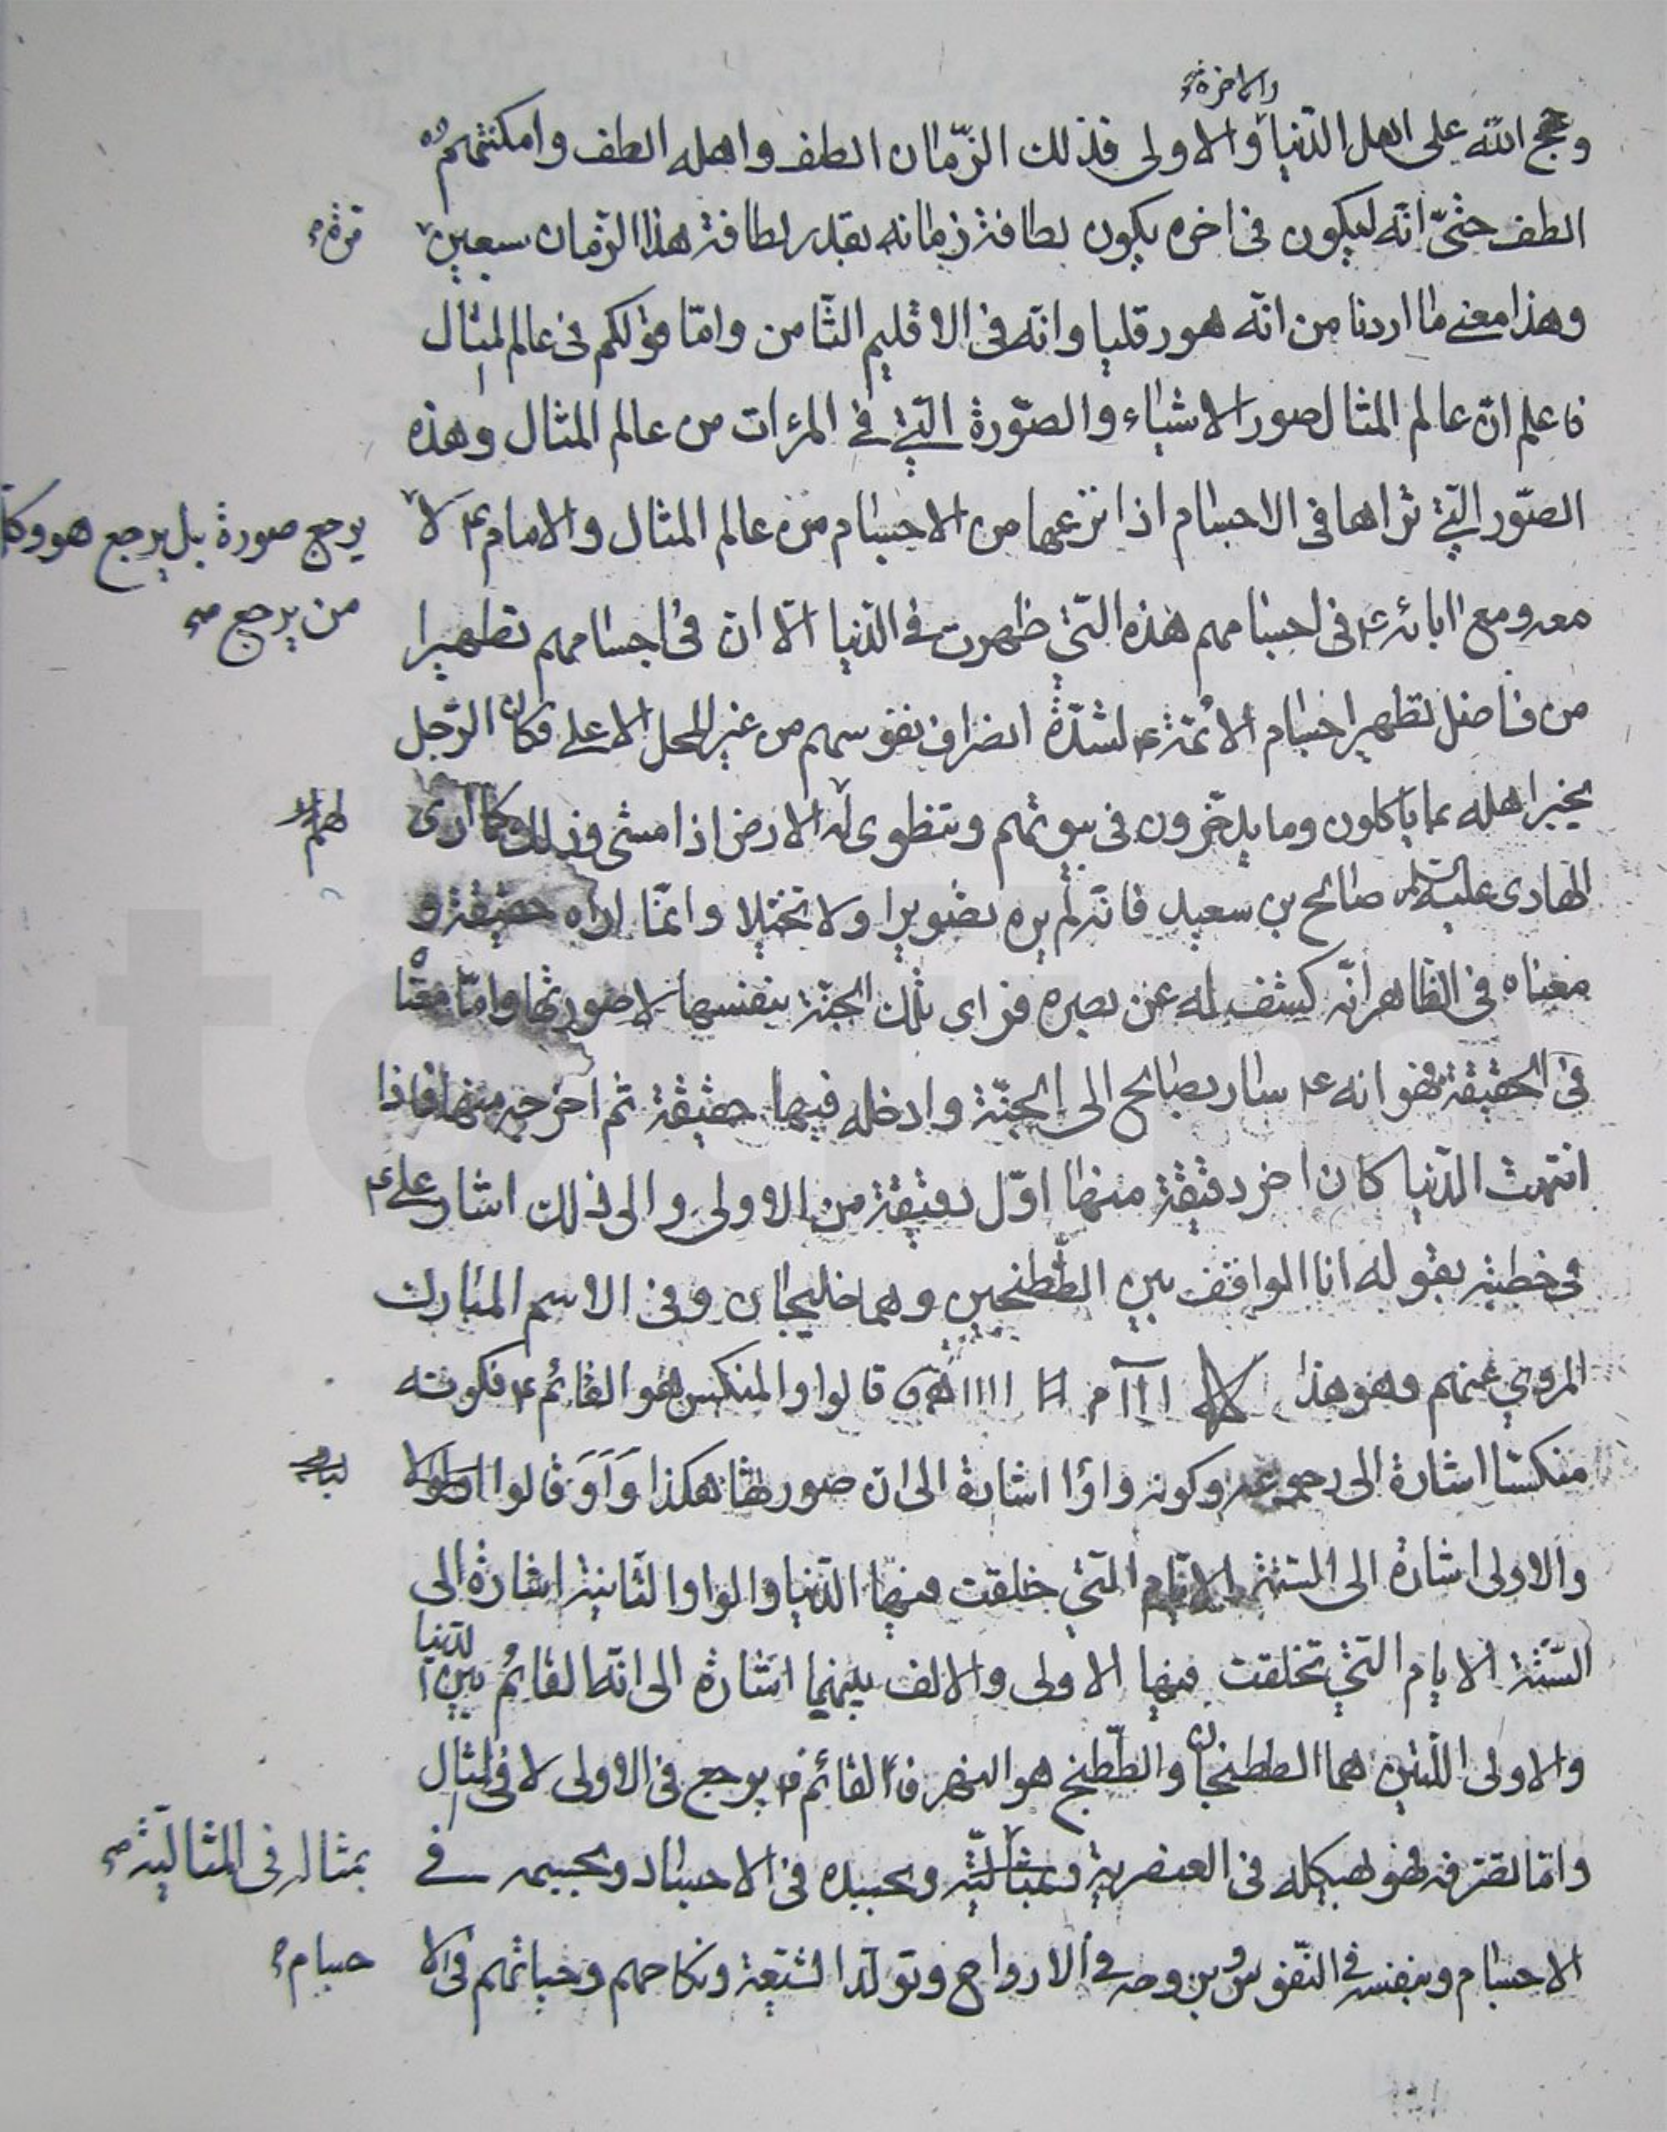 والاخرة
وحجج الله على اهل الدنيا والاولى فذلك الزمان الطف واهله الطف وامكنتهم
الطف حتى انه ليكون فى اخره يكون لطافة زمانه بقدر لطافة هذا الزمان سبعين مرة
وهذا معنى ما اردنا من انه هورقليا وانه فى الاقليم الثامن واما قولكم فى عالم المثال
فاعلم ان عالم المثال صور الاشياء والصورة التى فى المرءات من عالم المثال وهذه
الصور التى تراها فى الاجسام اذا نزعها من الاجسام من عالم المثال والامام ع لا يرجع صورة بل يرجع هو وكل
من يرجع
معه ومع ابائه ع فى اجسامهم هذه التى ظهرت فى الدنيا الا ان فى اجسامهم تطهيرا
من فاضل تطهير اجسام الائمة ع لشدة انصراف نفوسهم من غير المحل الاعلى فكان الرجل
يخبر اهله بما ياكلون وما يدخرون فى بيوتهم وتنطوى له الارض اذا مشى وذلك كما ارى
الهادى عليه السلام صالح بن سعيد فانه لم يره تصويرا ولا تخيلا وانما اراه حقيقة و
معناه فى الظاهر انه كشف له عن بصره فراى تلك الجنة بنفسها لا صورتها واما معناه
فى الحقيقة فهو انه ع سار بصالح الى الجنة وادخله فيها حقيقة ثم اخرجه منها فاذا
انتهت الدنيا كان اخر دقيقة منها اول دقيقة من الاولى والى ذلك اشار على ع
فى خطبته بقوله انا الواقف بين الطتنجين وهما خليجان وفى الاسم المبارك
المروى عنهم وهو هذا ااا م ## اااا ه و قالوا والمنكس هو القائم ع فكونه
منكسا اشارة الى رجوعه وكونه واوا اشارة الى ان صورتها هكذا واو قالوا
والاولى اشارة الى الستة الايام التى خلقت فيها الدنيا والواو الثانية اشارة الى
الستة الايام التى خلقت فيها الاولى والالف بينهما اشارة الى انه القائم بين الدنيا
والاولى اللتين هما الططنجان والططنج هو النهر فالقائم ع يرجع فى الاولى لا فى المثال
واما تصرفه فهو بهيكله فى العنصرية وبجسده فى الاجساد وبجسمه فى بمثاله فى المثالية
الاجسام وبنفسه فى النفوس وبروحه فى الارواح وتولد الشيعة ونكاحهم وحياتهم فى الا جسام